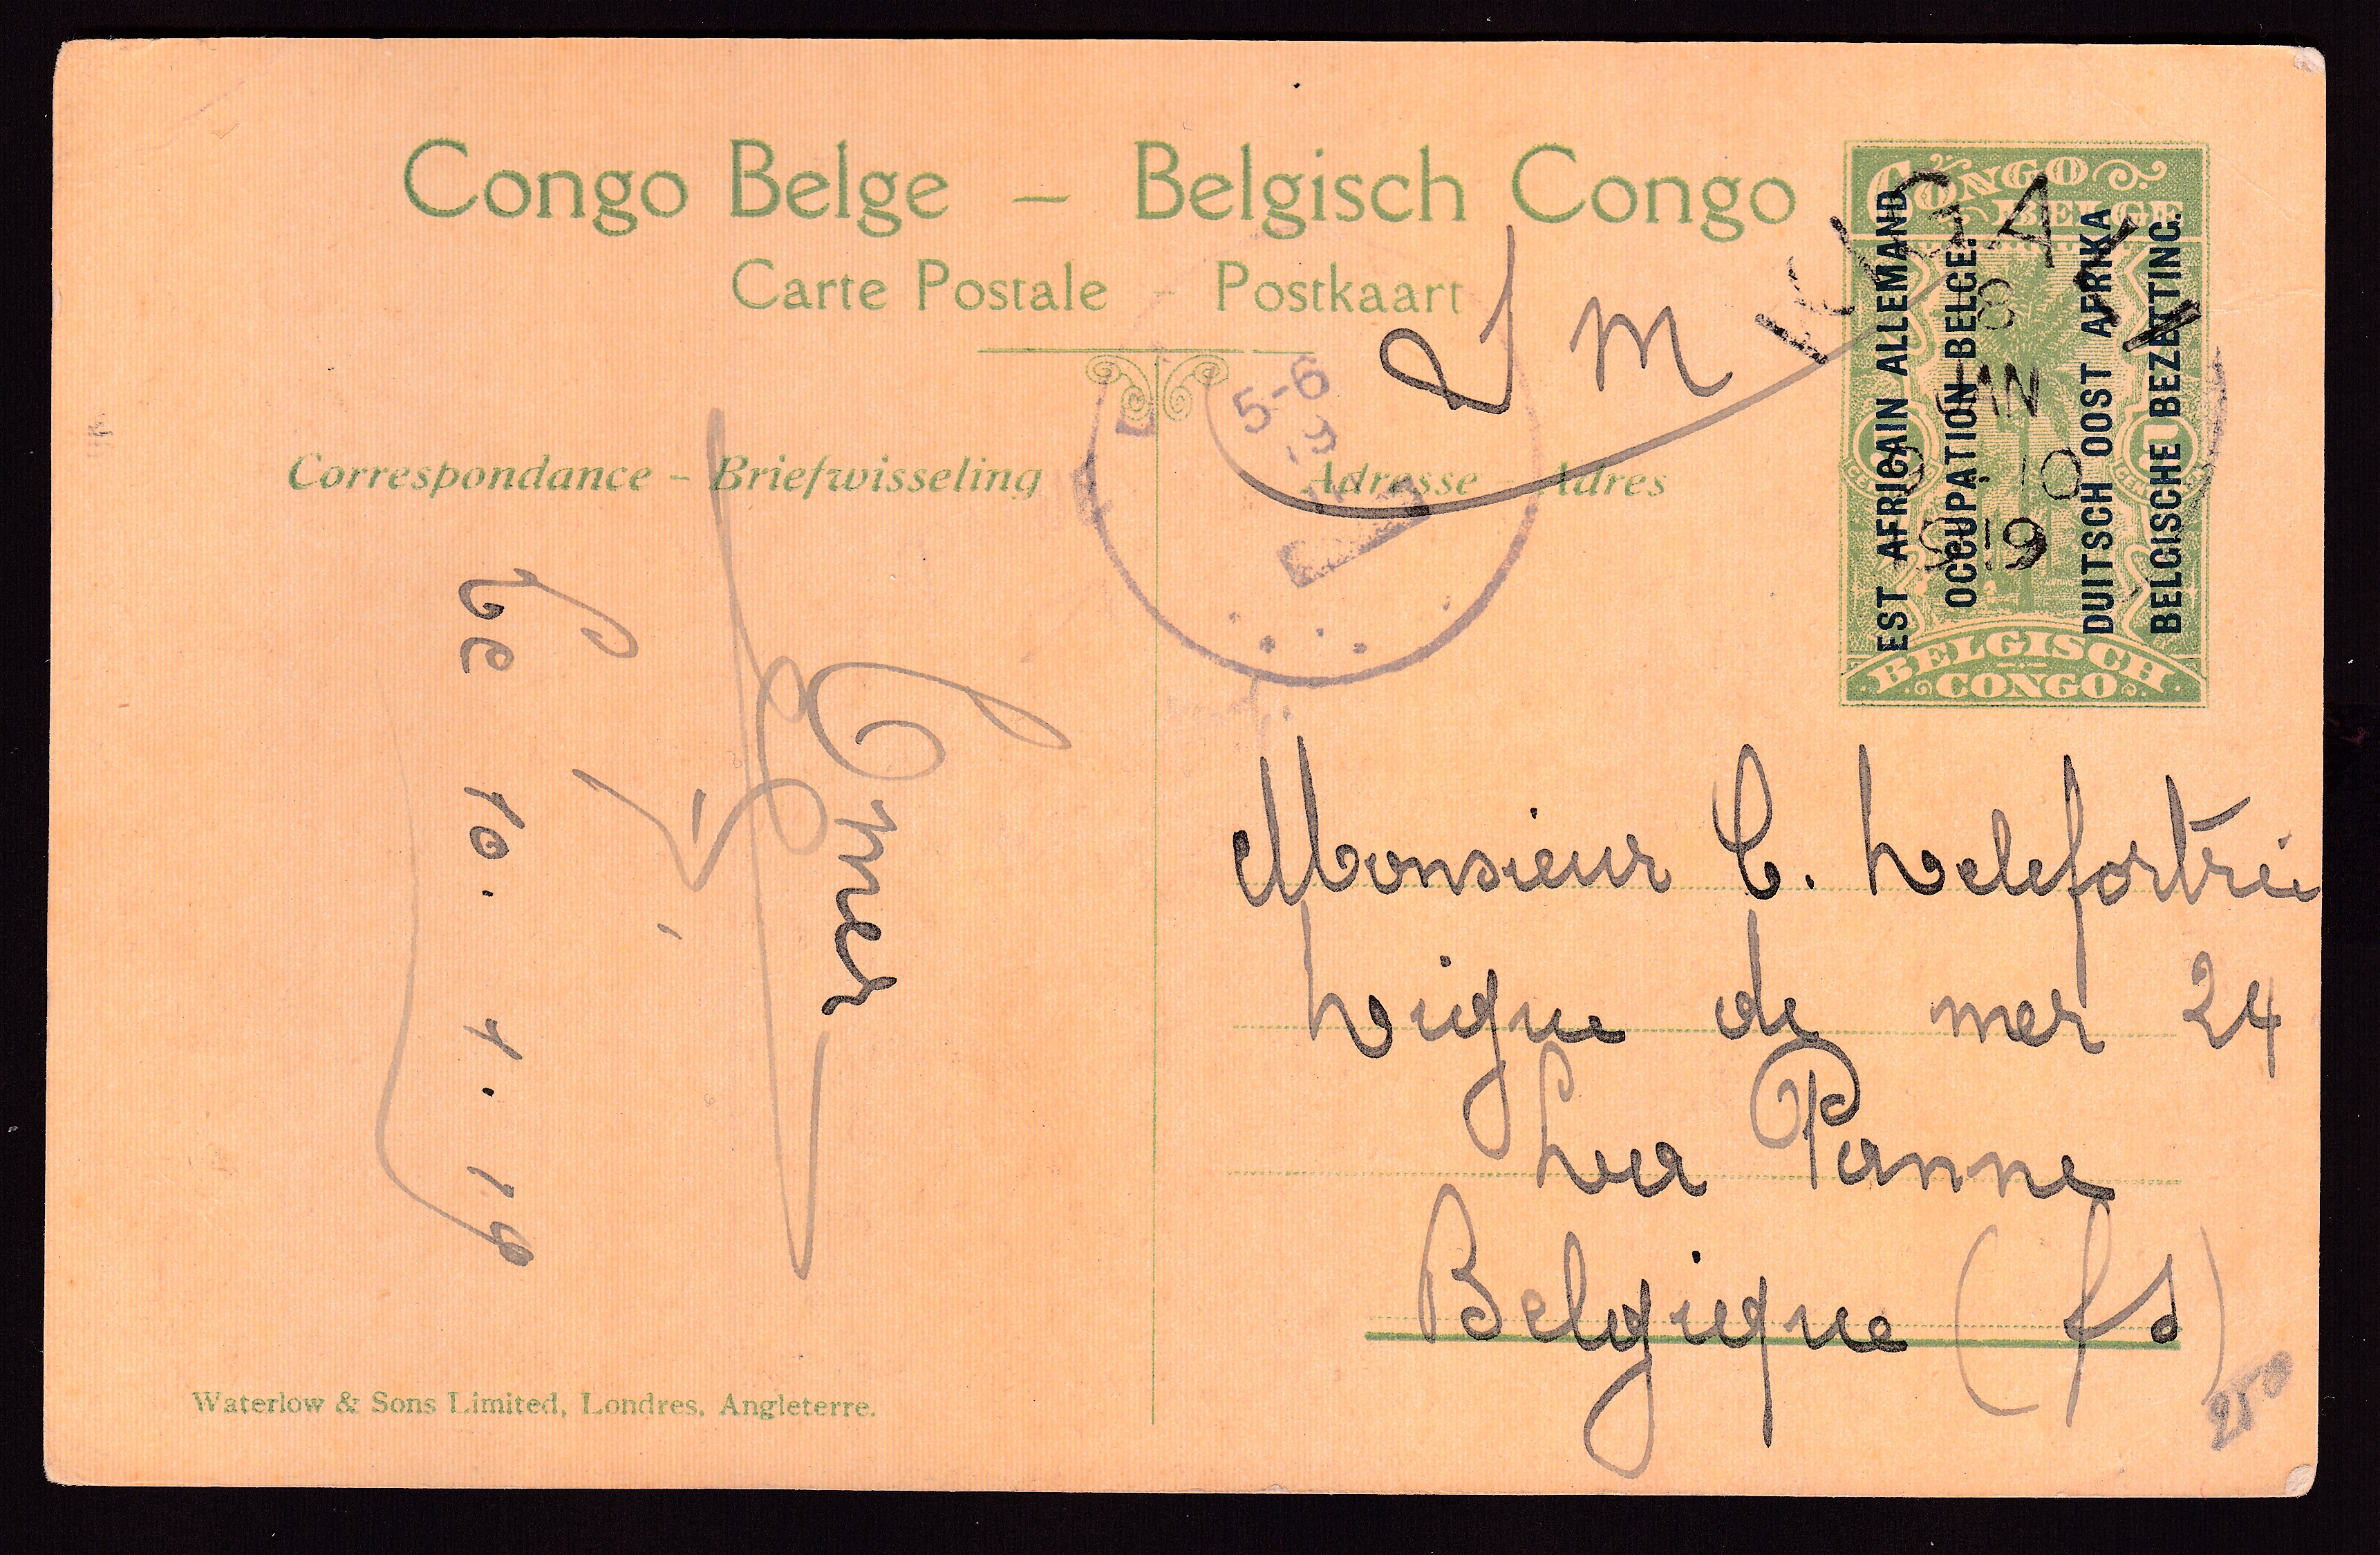 Congo Belge – Belgisch Congo
Carte Postale – Postkaart
Correspondance – Briefwisseling
Adresse – Adres
S M
CONGO
BELGE
EST AFRICAIN ALLEMAND
OCCUPATION BELGE.
DUITSCH OOST AFRIKA
BELGISCHE BEZETTING.
BELGISCH
CONGO
KIGOMA
8
10
19
5-6
19
Le 10. 1. 19
Omer
Monsieur C. Delefortrie
Digue de mer 24
La Panne
Belgique (
Waterlow & Sons Limited, Londres, Angleterre.
250